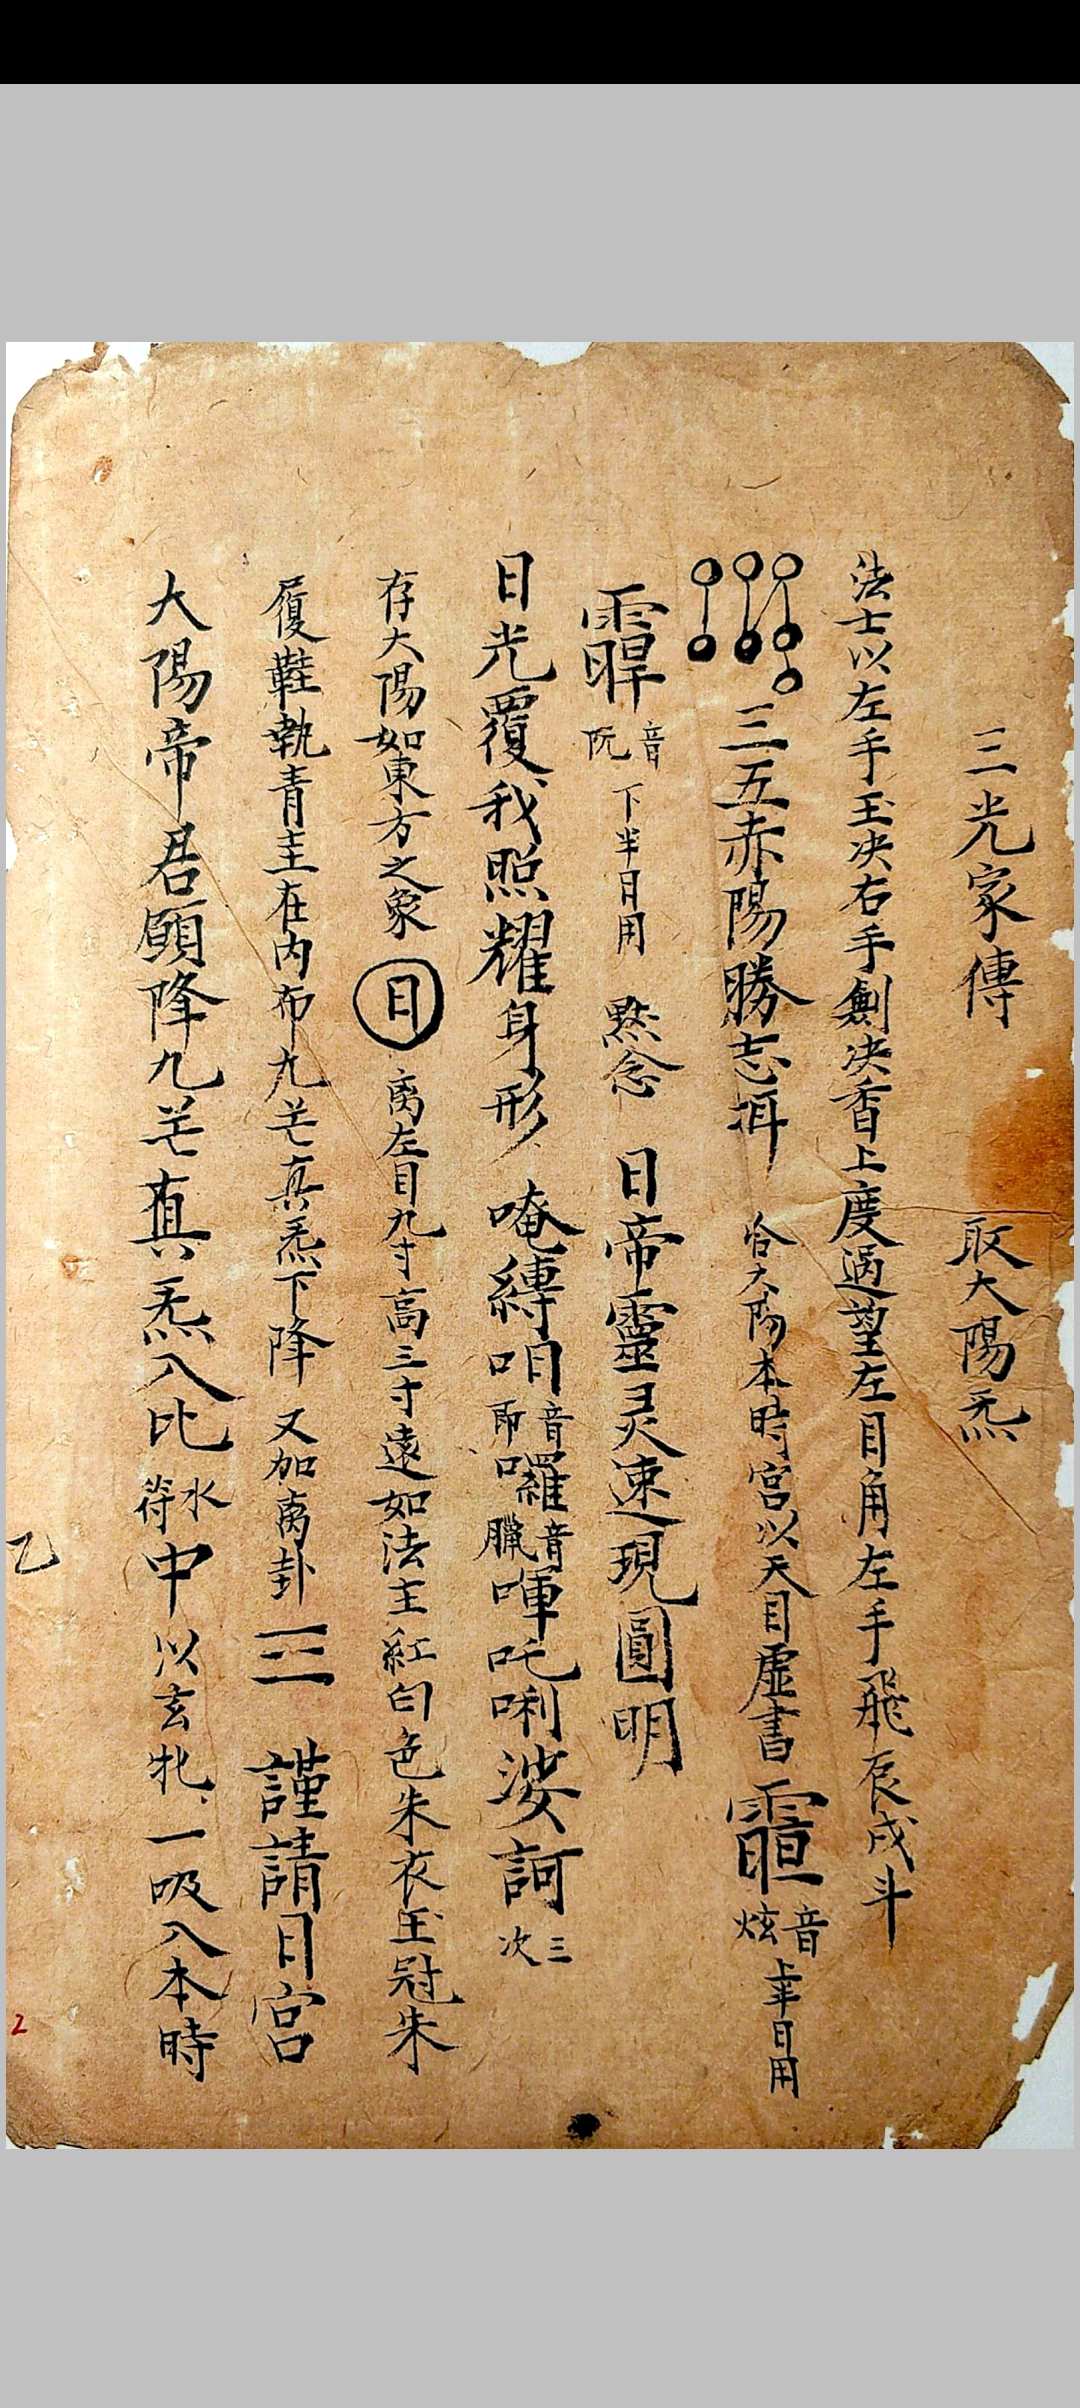 三光家傳 取大陽炁
法士以左手玉决右手劍决香上度過望左目角左手飛辰戌斗
三五赤陽勝志 合大陽本時宮以天目虛書 音炫 上半日用
音阮 下半日用 黙念 日帝靈灵速現圓明
日光覆我照耀身形 唵縛咟音聑囉音臘㖉吒唎娑訶三次
存大陽如東方之象 日 离左目九寸高三寸遠如法主紅白色朱衣玉冠朱
履鞋執青圭在内布九芒真炁下降 又加离卦 ☲ 謹請日宮
大陽帝君願降九芒真炁入比水符中以玄牝一吸入本時
乙
2